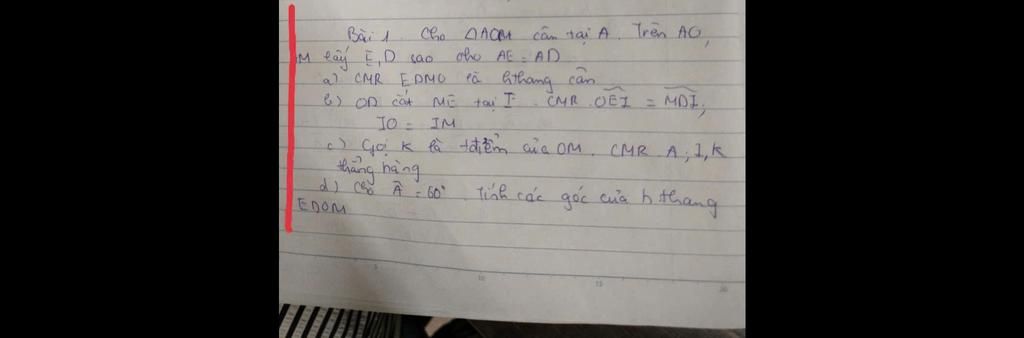 Bài 1. Cho ΔAOM cân tại A. Trên AO,
M lấy E, D sao cho AE = AD
a) CMR EDMO là hthang cân
b) OD cắt ME tại I. CMR OEI = MDI,
IO = IM
c) Gọi K là tđiểm của OM. CMR A, I, K
thẳng hàng
d) Cho Â = 60°. Tính các góc của hthang
EDOM
5 10 15 20